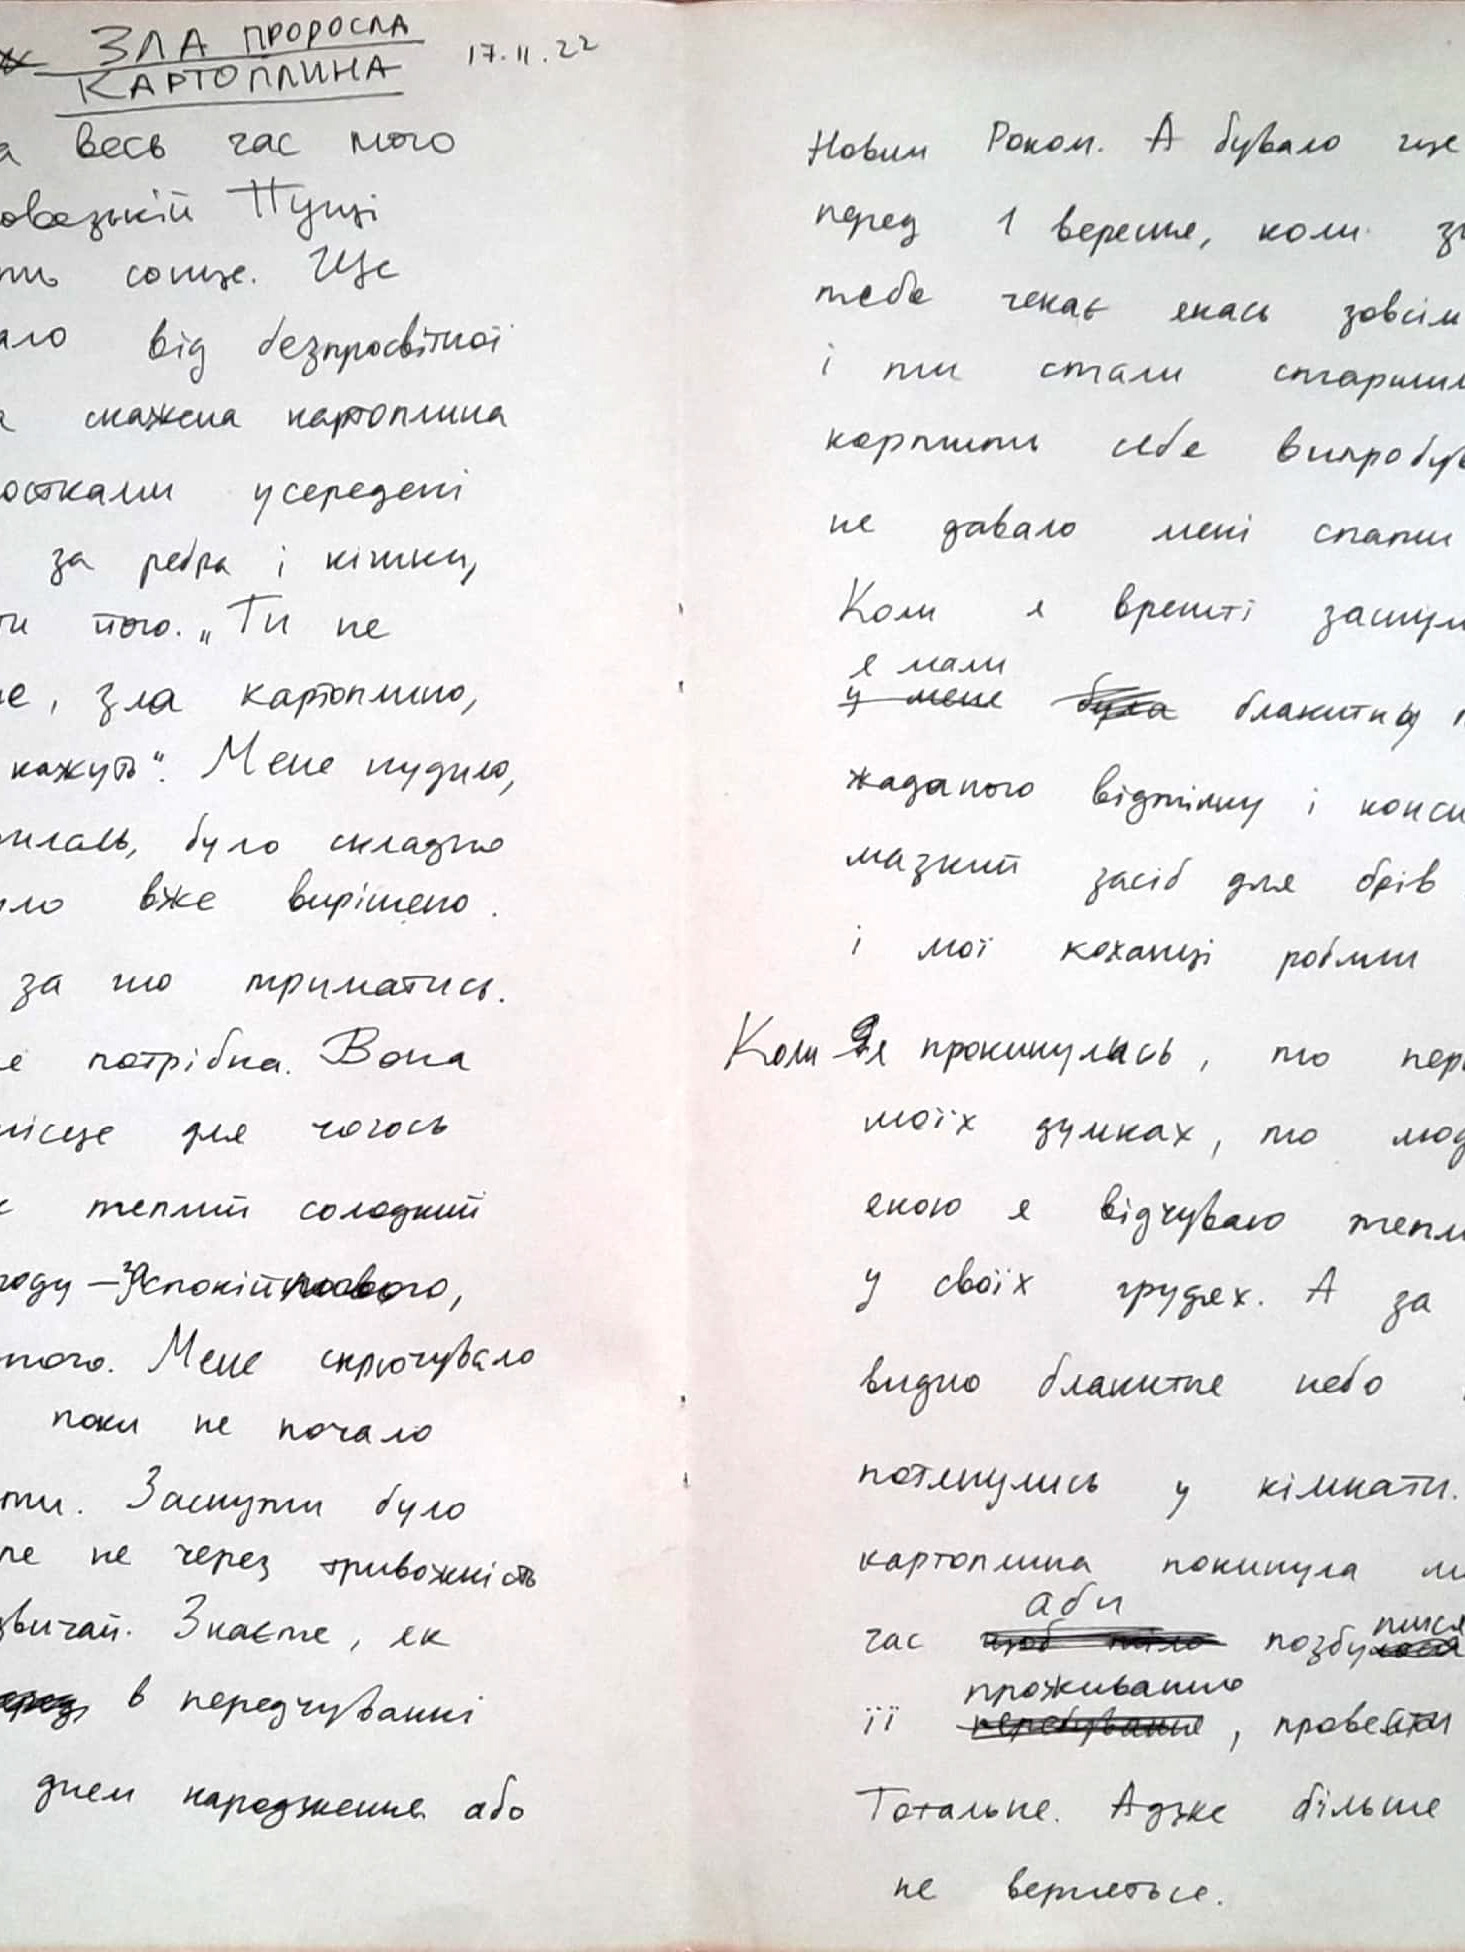 ЗЛА ПРОРОСЛА
КАРТОПЛИНА
17.11.22
а весь час мого
овазькій Пущі
ти сонце. Ще
ало від безпросвітної
а скажена картоплина
остками усередені
за ребра і кішки,
ти його. „Ти не
е, зла картоплино,
кажуть“. Мене нудило,
илась, було складно
ло вже вирішено.
за що триматись.
е потрібна. Вона
місце для чогось
к теплий солодкий
году – заспокійливого,
ного. Мене скрючувало
поки не почало
ти. Заснути було
ре не через тривожність
звичай. Знаєте, як
в передчуванні
днем народження або
Новим Роком. А бувало ще
перед 1 вересня, коли зн
тебе чекає якась зовсім
і ти стали старшим
корпити себе випробув
не давало мені спати
Коли я врешті заснул
я мали
у мене була блакитну п
жаданого відтінку і конси
мазкий засіб для брів
і мої коханці робили
Коли я прокинулась, то пер
моїх думках, то люд
якою я відчуваю тепл
у своїх грудях. А за
видно блакитне небо
потягнулись у кімнати.
картоплина покинула м
аби
час щоб тіло позбутися
проживанню
її перебування, провести
Тотальне. Адже більше
не вернеться.